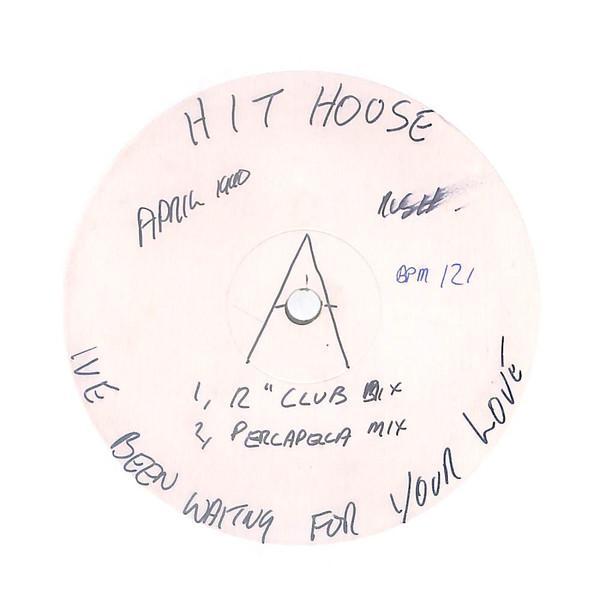 HIT HOUSE
APRIL 1990
RUSH.
BPM 121
A
1, 12" CLUB MIX
2, PERCAPELLA MIX
IVE BEEN WAITING FOR YOUR LOVE